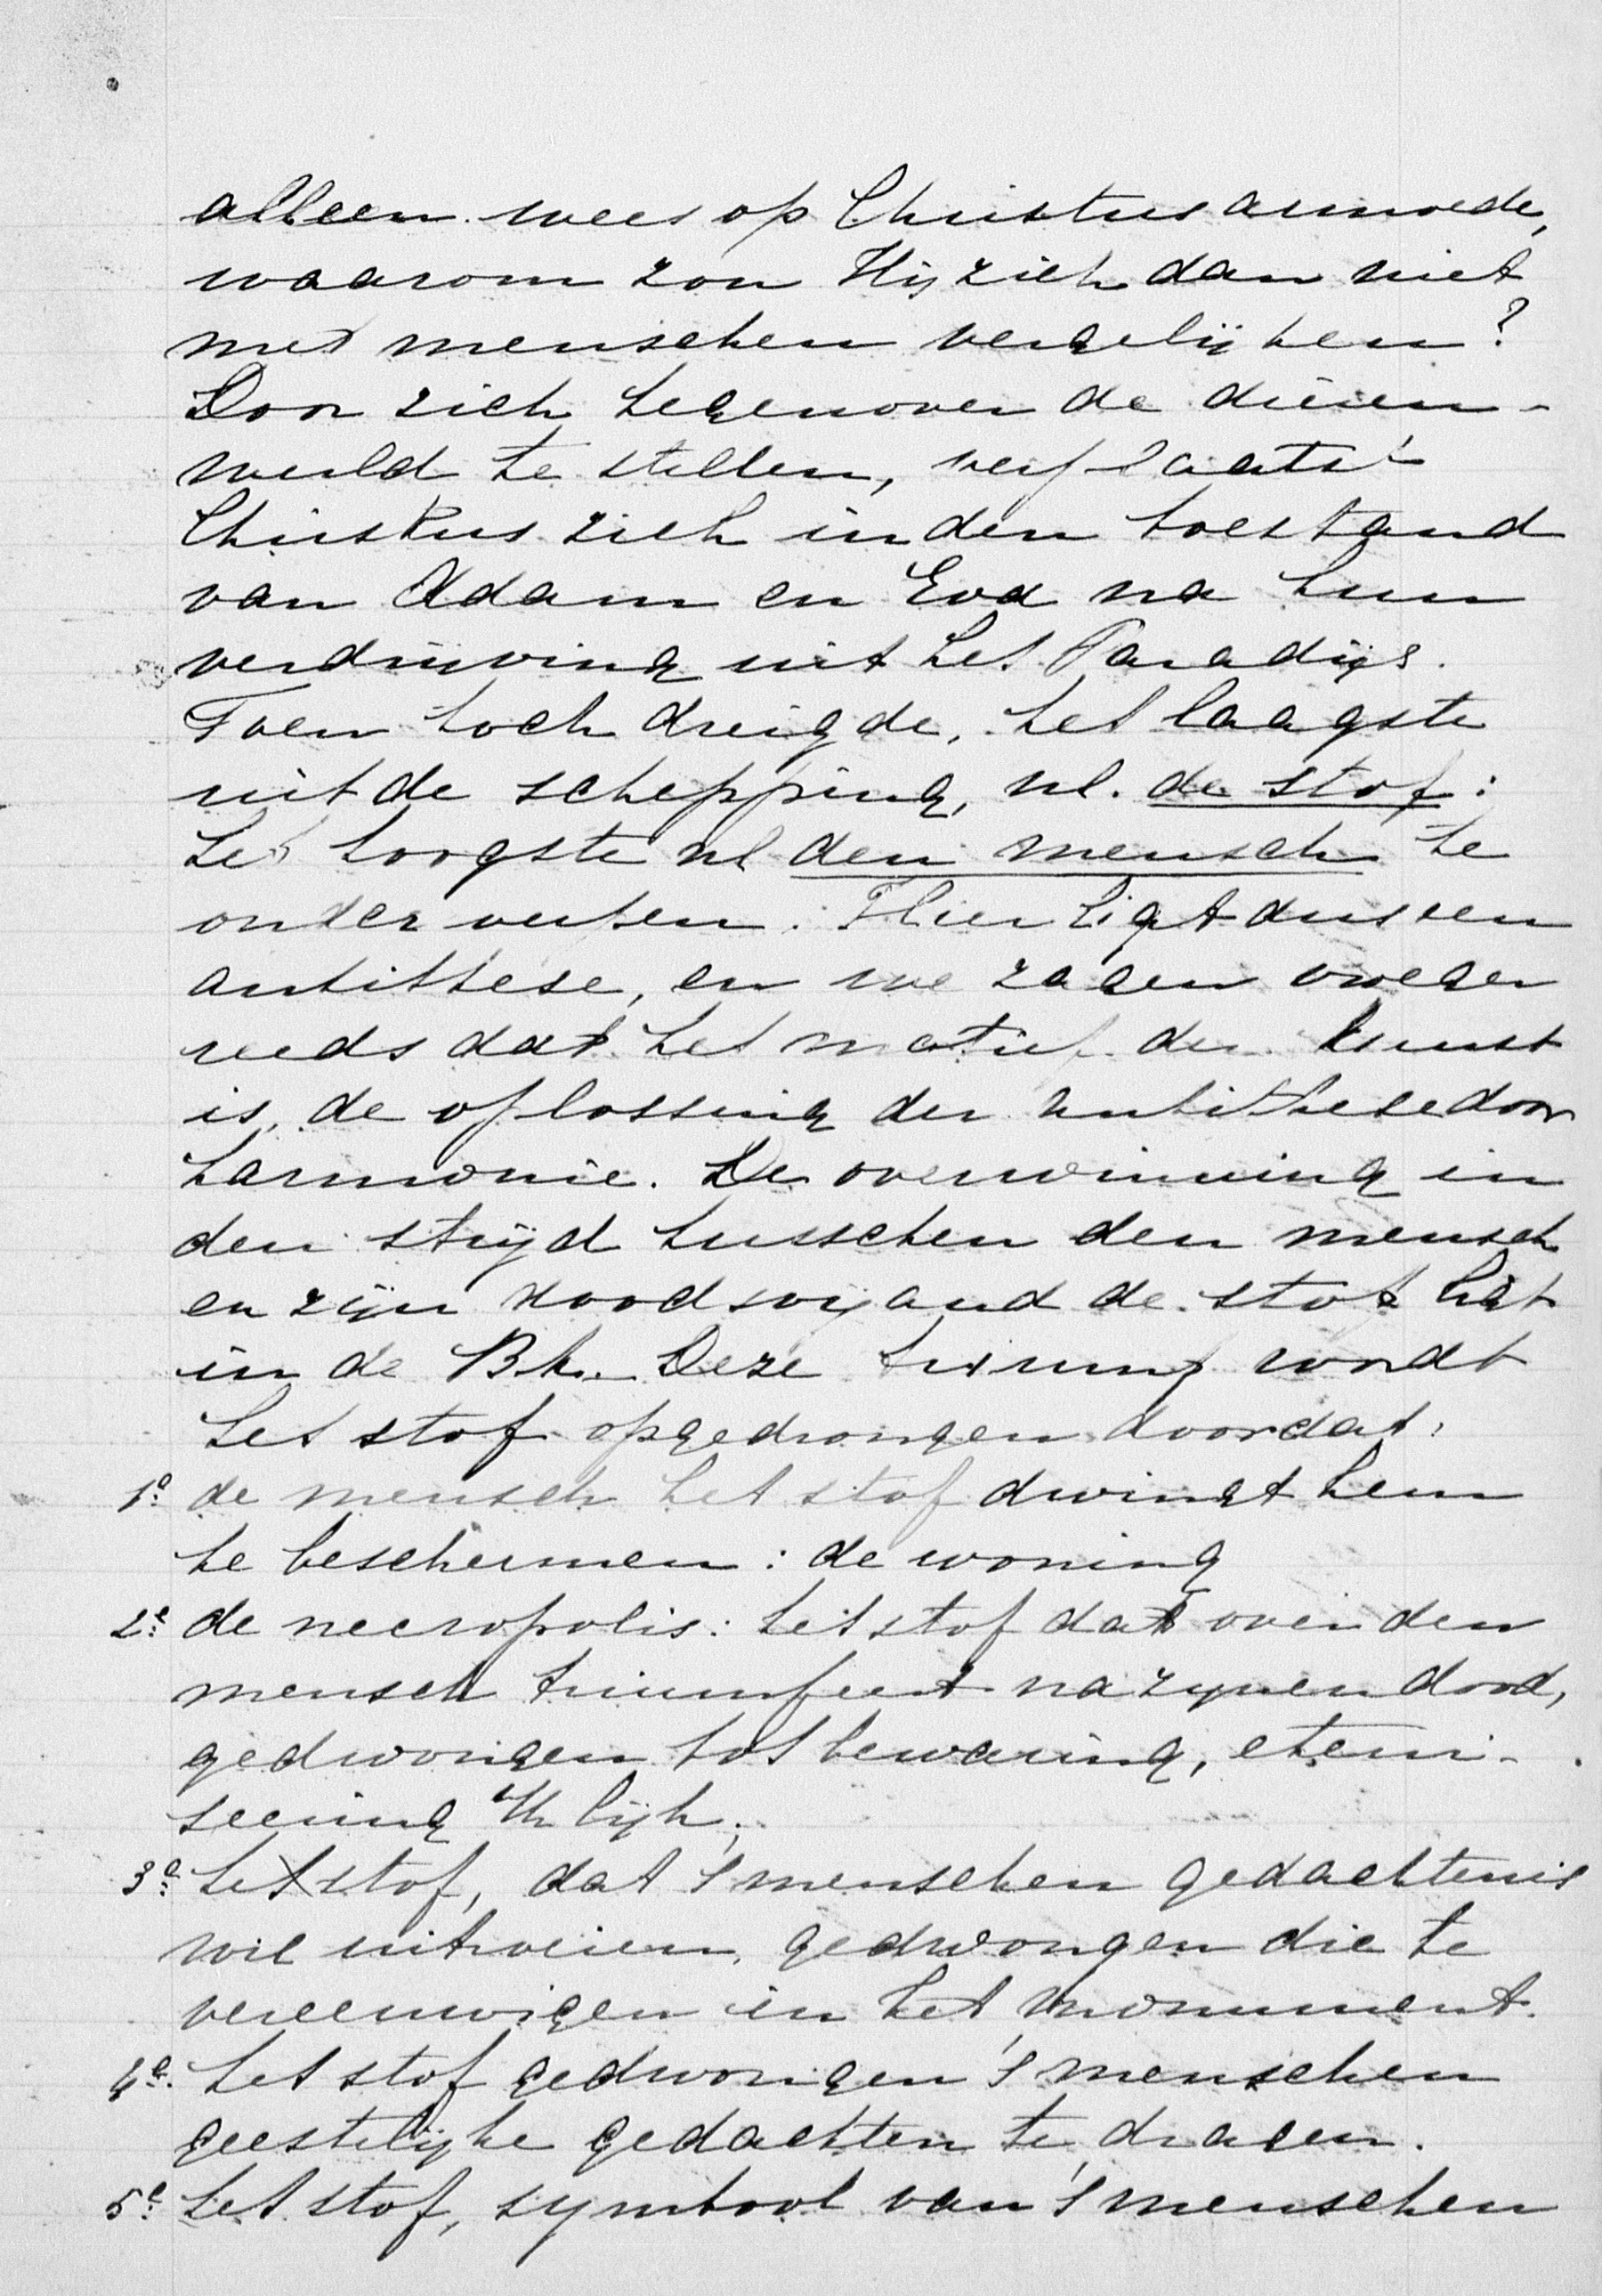 alleen wees op Christus armoede,
waarom zou Hij zich dan niet
met menschen vergelijken?
Door zich tegenover de dieren-
wereld te stellen, verplaatst
Christus zich in den toestand
van Adam en Eva na hun
verdrijving uit het Paradijs.
Toen toch dreigde, het laagste
uit de schepping, nl. de stof:
het hoogste nl den mensch te
onderwerpen. Hier ligt dus een
antithese, en we zagen vroeger
reeds dat het motief der kunst
is, de oplossing der antithese door
harmonie. De overwinning in
den strijd tusschen den mensch
en zijn doodsvijand de stof ligt
in de Bk. Deze triumf wordt
het stof opgedrongen doordat:
1e de mensch het stof dwingt hem
te beschermen: de woning
2e de necropolis: het stof dat over den
mensch triumfeert na zynen dood,
gedwongen tot bewaring, eterni-
seering v/h lijk;
3e het stof, dat 's menschen gedachtenis
wil uitroeien, gedwongen die te
vereeuwigen in het monument.
4e. het stof gedwongen 's menschen
geestelijke gedachten te dragen.
5e het stof, symbool van 's menschen